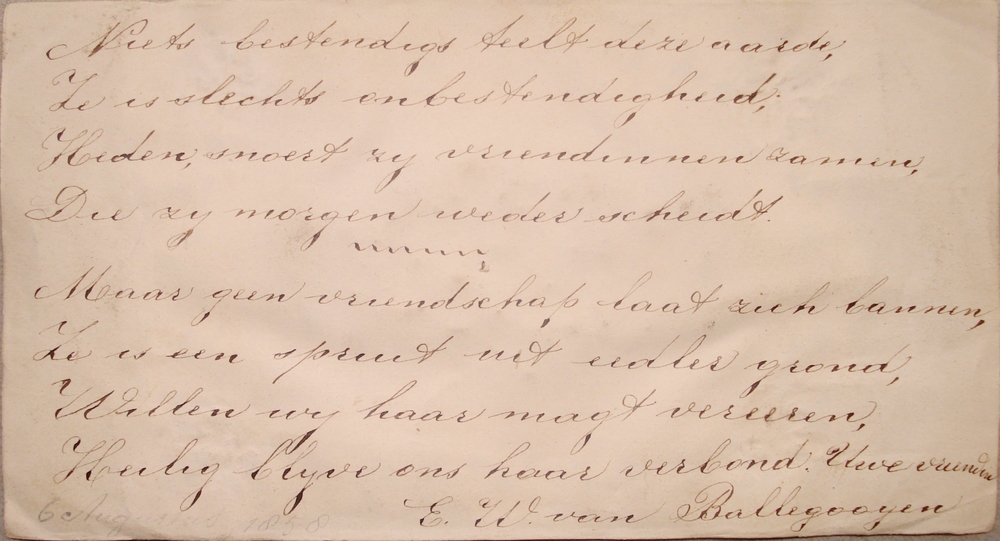 Niets bestendigs teelt deze aarde,
Ze is slechts onbestendigheid;
Heden, snoert zy vriendinnen zamen,
Die zy morgen weder scheidt.
Maar geen vriendschap laat zich bannen,
Ze is een spruit uit eedler grond,
Willen wy haar magt vereeren,
Heilig blyve ons haar verbond. Uwe vriendin
E. W. van Ballegooyen
6 Augustus 1858